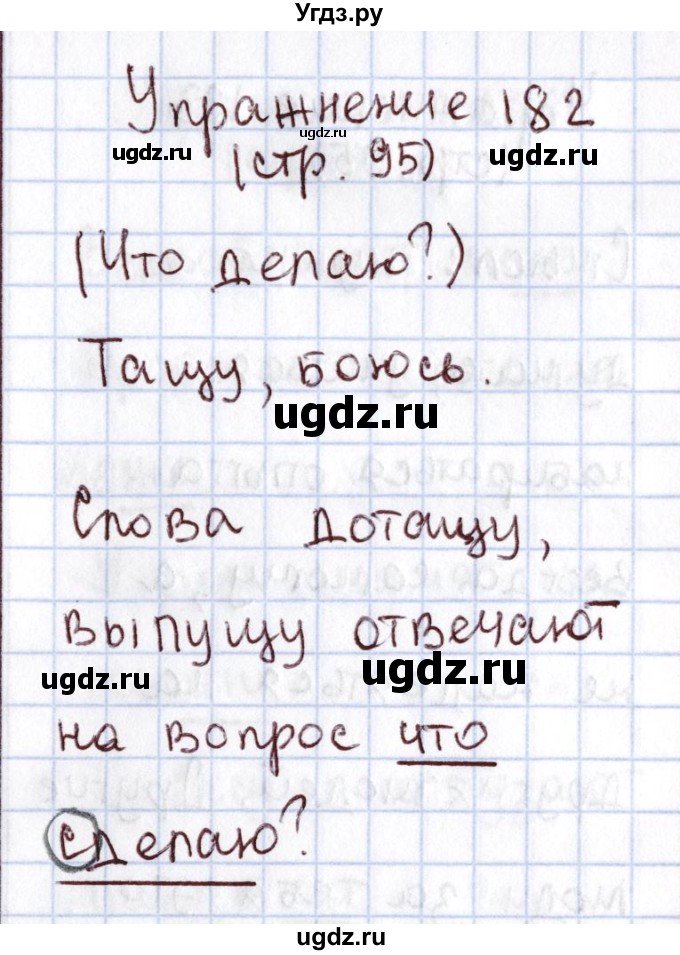 Угдз.ру
Упражнение 182
ugdz.ru
ugdz.ru
ugdz.ru
(стр. 95)
(Что делаю?)
Тащу, боюсь.
ugdz.ru
Слова дотащу,
выпущу отвечают
ugdz.ru
ugdz.ru
на вопрос что
сделаю?
ugdz.ru